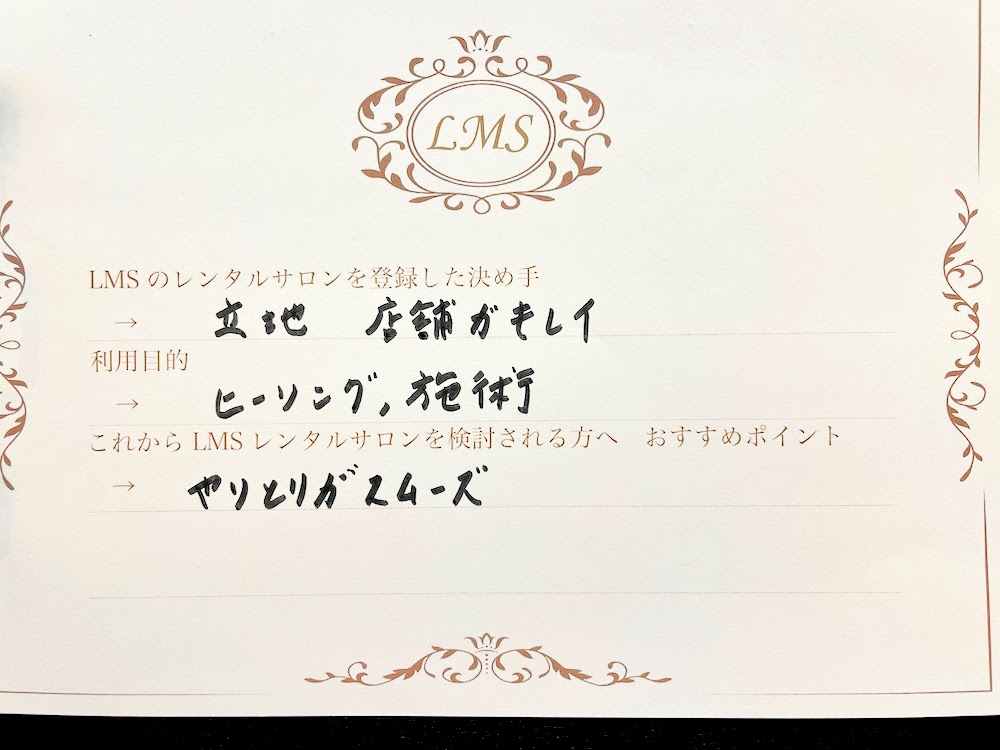 LMS
LMSのレンタルサロンを登録した決め手
→ 立地 店舗がキレイ
利用目的
→ ヒーリング, 施術
これからLMSレンタルサロンを検討される方へ おすすめポイント
→ やりとりがスムーズ